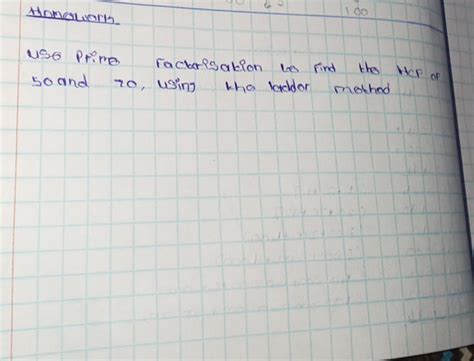 100
Homework
Use Prime Factorisation to find the HCF of
50 and 70, using the ladder method